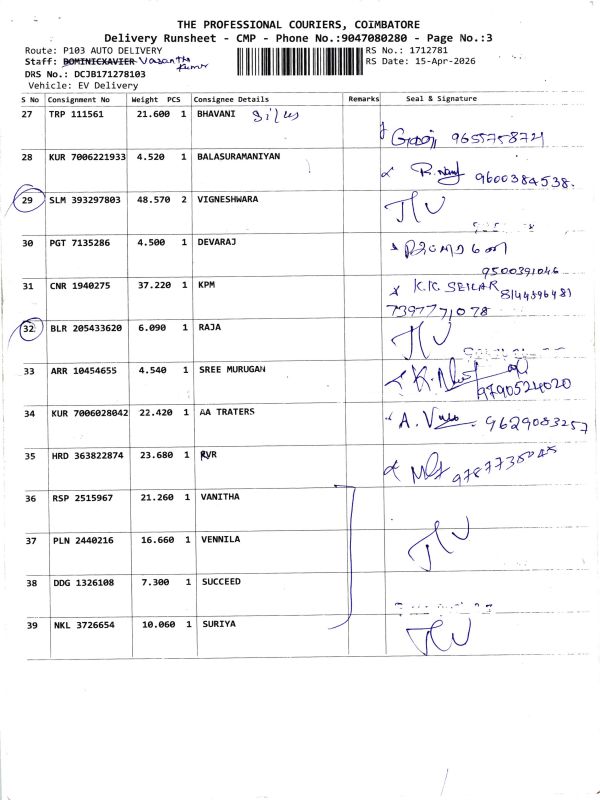 THE PROFESSIONAL COURIERS, COIMBATORE
Delivery Runsheet - CMP - Phone No.:9047080280 - Page No.:3
Route: P103 AUTO DELIVERY RS No.: 1712781
Staff: DOMINICXAVIER Vasantha Kumar RS Date: 15-Apr-2026
DRS No.: DCJB171278103
Vehicle: EV Delivery
S No Consignment No Weight PCS Consignee Details Remarks Seal & Signature
27 TRP 111561 21.600 1 BHAVANI Silks
9655758721
28 KUR 7006221933 4.520 1 BALASURAMANIYAN
9600384538.
29 SLM 393297803 48.570 2 VIGNESHWARA
30 PGT 7135286 4.500 1 DEVARAJ
9500391046
31 CNR 1940275 37.220 1 KPM K.K. SEILAR 8144396481
7397771078
32 BLR 205433620 6.090 1 RAJA
33 ARR 10454655 4.540 1 SREE MURUGAN
9790524020
34 KUR 7006028042 22.420 1 AA TRATERS
9629083257
35 HRD 363822874 23.680 1 RVR
36 RSP 2515967 21.260 1 VANITHA
37 PLN 2440216 16.660 1 VENNILA
38 DDG 1326108 7.300 1 SUCCEED
39 NKL 3726654 10.060 1 SURIYA